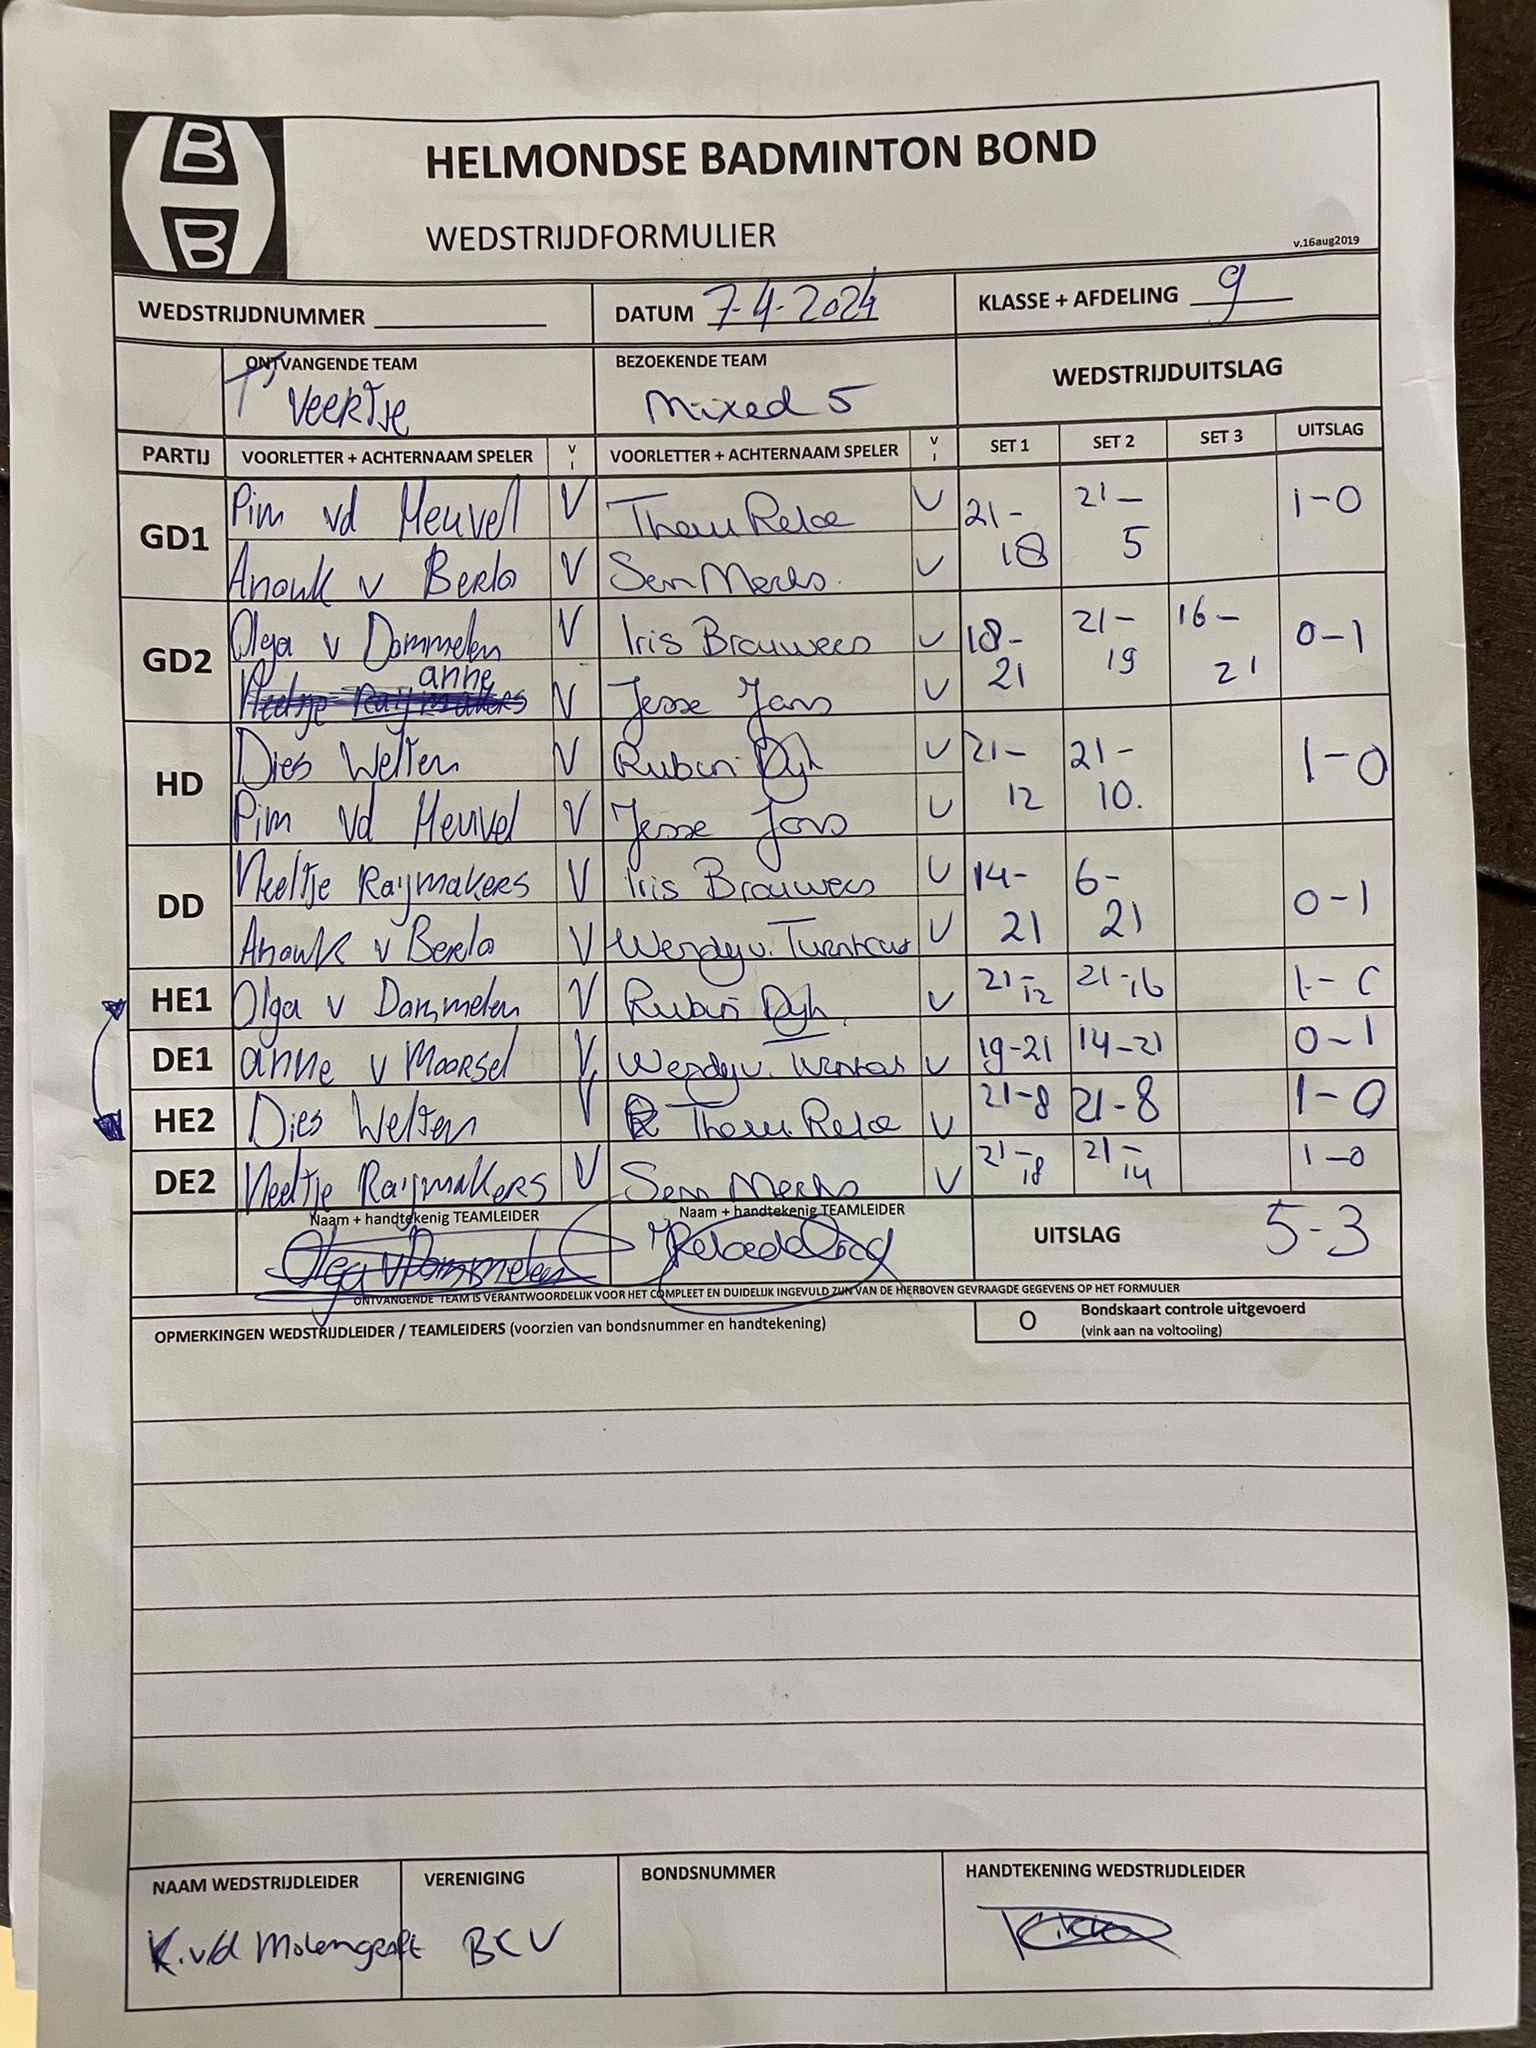 B
B
HELMONDSE BADMINTON BOND
WEDSTRIJDFORMULIER
v.16aug2019
WEDSTRIJDNUMMER
DATUM 7-4-2024
KLASSE + AFDELING 9
ONTVANGENDE TEAM
T' Veertje
BEZOEKENDE TEAM
Mixed 5
WEDSTRIJDUITSLAG
PARTIJ VOORLETTER + ACHTERNAAM SPELER V I VOORLETTER + ACHTERNAAM SPELER V I SET 1 SET 2 SET 3 UITSLAG
GD1 Pim vd Heuvel V V 21-18 21-5 1-0
Anouk v Berlo V V
GD2 Olga v Dommelen V Iris Brouwers V 18-21 21-19 16-21 0-1
anne V Jesse Jans V
HD Dies Welten V Ruben V 21-12 21-10. 1-0
Pim vd Heuvel V Jesse Jans V
DD Neeltje Raijmakers V Iris Brouwers V 14-21 6-21 0-1
Anouk v Berlo V Wendy v. Turnhout V
HE1 Olga v Dommelen V Ruben V 21-12 21-16 1-0
DE1 anne v Moorsel V Wendy v. V 19-21 14-21 0-1
HE2 Dies Welten V V 21-8 21-8 1-0
DE2 Neeltje Raijmakers V V 21-18 21-14 1-0
Naam + handtekenig TEAMLEIDER
Olga v Dommelen
Naam + handtekenig TEAMLEIDER
UITSLAG 5-3
ONTVANGENDE TEAM IS VERANTWOORDELIJK VOOR HET COMPLEET EN DUIDELIJK INGEVULD ZIJN VAN DE HIERBOVEN GEVRAAGDE GEGEVENS OP HET FORMULIER
OPMERKINGEN WEDSTRIJDLEIDER / TEAMLEIDERS (voorzien van bondsnummer en handtekening)
O Bondskaart controle uitgevoerd
(vink aan na voltooiing)
NAAM WEDSTRIJDLEIDER
K. v/d Molengraft
VERENIGING
BCV
BONDSNUMMER
HANDTEKENING WEDSTRIJDLEIDER